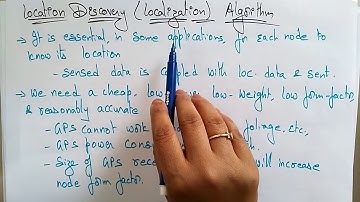 Location Discovery (Localization) Algorithm
→ It is essential, in some applications, for each node to
know its location
- Sensed data is coupled with loc. data & sent.
→ We need a cheap, low- low-weight, low form-factor,
& reasonably accurate
- APS cannot work foliage, etc,
- APS power cons
- Size of APS rece will increase
node form factor.